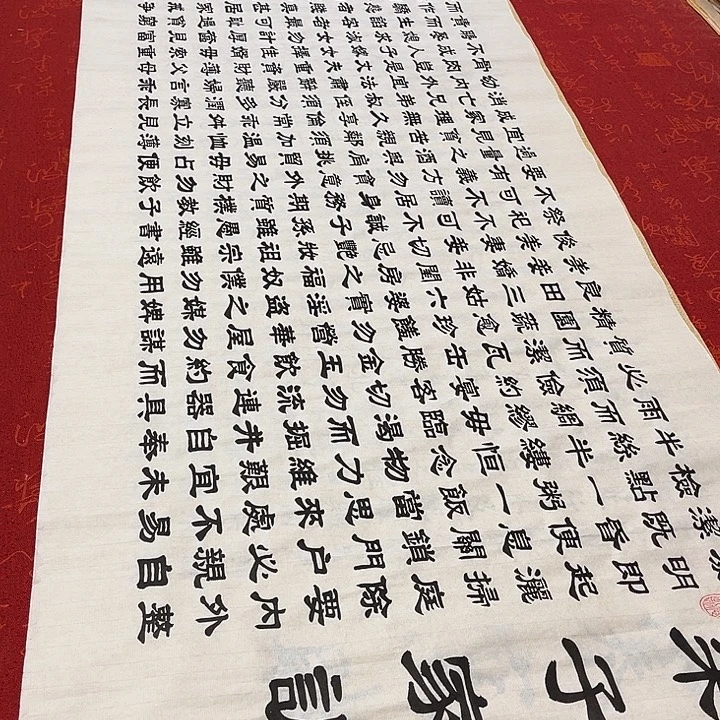 朱子家訓
黎明即起灑掃庭除要內外整
潔既昏便息關鎖門户必親自
檢點一粥一飯當思來處不易
半絲半縷恒念物力維艱宜未
雨而綢繆毋臨渴而掘井自奉
必須儉約宴客切勿流連器具
質而潔瓦缶勝金玉飲食約而
精園蔬愈珍饈勿營華屋勿謀
良田三姑六婆實淫盜之媒婢
美妾嬌非閨房之福奴僕勿用
俊美妻妾切忌艷妝祖宗雖遠
祭祀不可不誠子孫雖愚經書
不可不讀居身務期質樸教子
要有義方勿貪意外之財勿飲
過量之酒與肩挑貿易毋占便
宜見貧苦親鄰須加溫恤刻薄
成家理無久享倫常乖舛立見
消亡兄弟叔侄須分多潤寡長
幼內外宜法肅辭嚴聽婦言乖
骨肉豈是丈夫重資財薄父母
不成人子嫁女擇佳婿毋索重
聘娶媳求淑女勿計厚奩見富
貴而生諂容者最可恥遇貧窮
而作驕態者賤莫甚居家戒爭